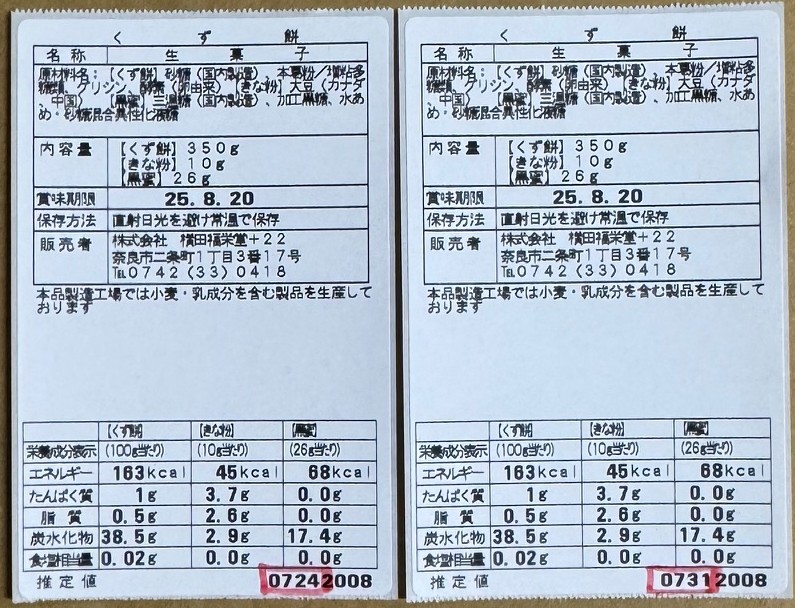 くず餅
名称 生菓子
原材料名：【くず餅】砂糖（国内製造）、本葛粉／増粘多
糖類、グリシン、酵素（卵由来）【きな粉】大豆（カナダ
、中国）　【黒蜜】三温糖（国内製造）、加工黒糖、水あ
め・砂糖混合異性化液糖
内容量 【くず餅】３５０g
【きな粉】１０g
【黒蜜】２６g
賞味期限 25.8.20
保存方法 直射日光を避け常温で保存
販売者 株式会社　横田福栄堂＋２２
奈良市二条町１丁目３番１７号
℡０７４２（３３）０４１８
本品製造工場では小麦・乳成分を含む製品を生産して
おります
【くず餅】 【きな粉】 【黒蜜】
栄養成分表示 (100g当たり) (10g当たり) (26g当たり)
エネルギー 163kcal 45kcal 68kcal
たんぱく質 1g 3.7g 0.0g
脂質 0.5g 2.6g 0.0g
炭水化物 38.5g 2.9g 17.4g
食塩相当量 0.02g 0.0g 0.0g
推定値 07242008
くず餅
名称 生菓子
原材料名：【くず餅】砂糖（国内製造）、本葛粉／増粘多
糖類、グリシン、酵素（卵由来）【きな粉】大豆（カナダ
、中国）　【黒蜜】三温糖（国内製造）、加工黒糖、水あ
め・砂糖混合異性化液糖
内容量 【くず餅】３５０g
【きな粉】１０g
【黒蜜】２６g
賞味期限 25.8.20
保存方法 直射日光を避け常温で保存
販売者 株式会社　横田福栄堂＋２２
奈良市二条町１丁目３番１７号
℡０７４２（３３）０４１８
本品製造工場では小麦・乳成分を含む製品を生産して
おります
【くず餅】 【きな粉】 【黒蜜】
栄養成分表示 (100g当たり) (10g当たり) (26g当たり)
エネルギー 163kcal 45kcal 68kcal
たんぱく質 1g 3.7g 0.0g
脂質 0.5g 2.6g 0.0g
炭水化物 38.5g 2.9g 17.4g
食塩相当量 0.02g 0.0g 0.0g
推定値 07312008